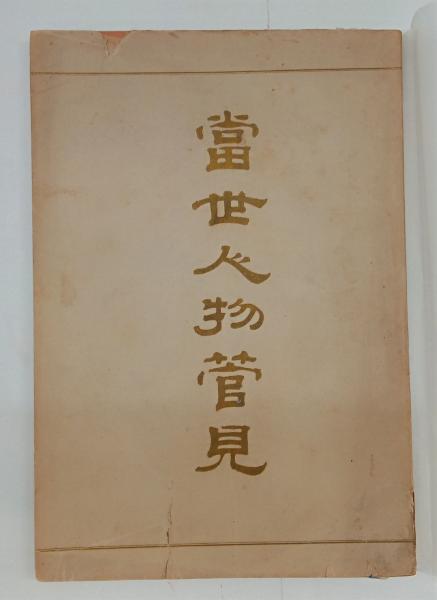 當世人物管見